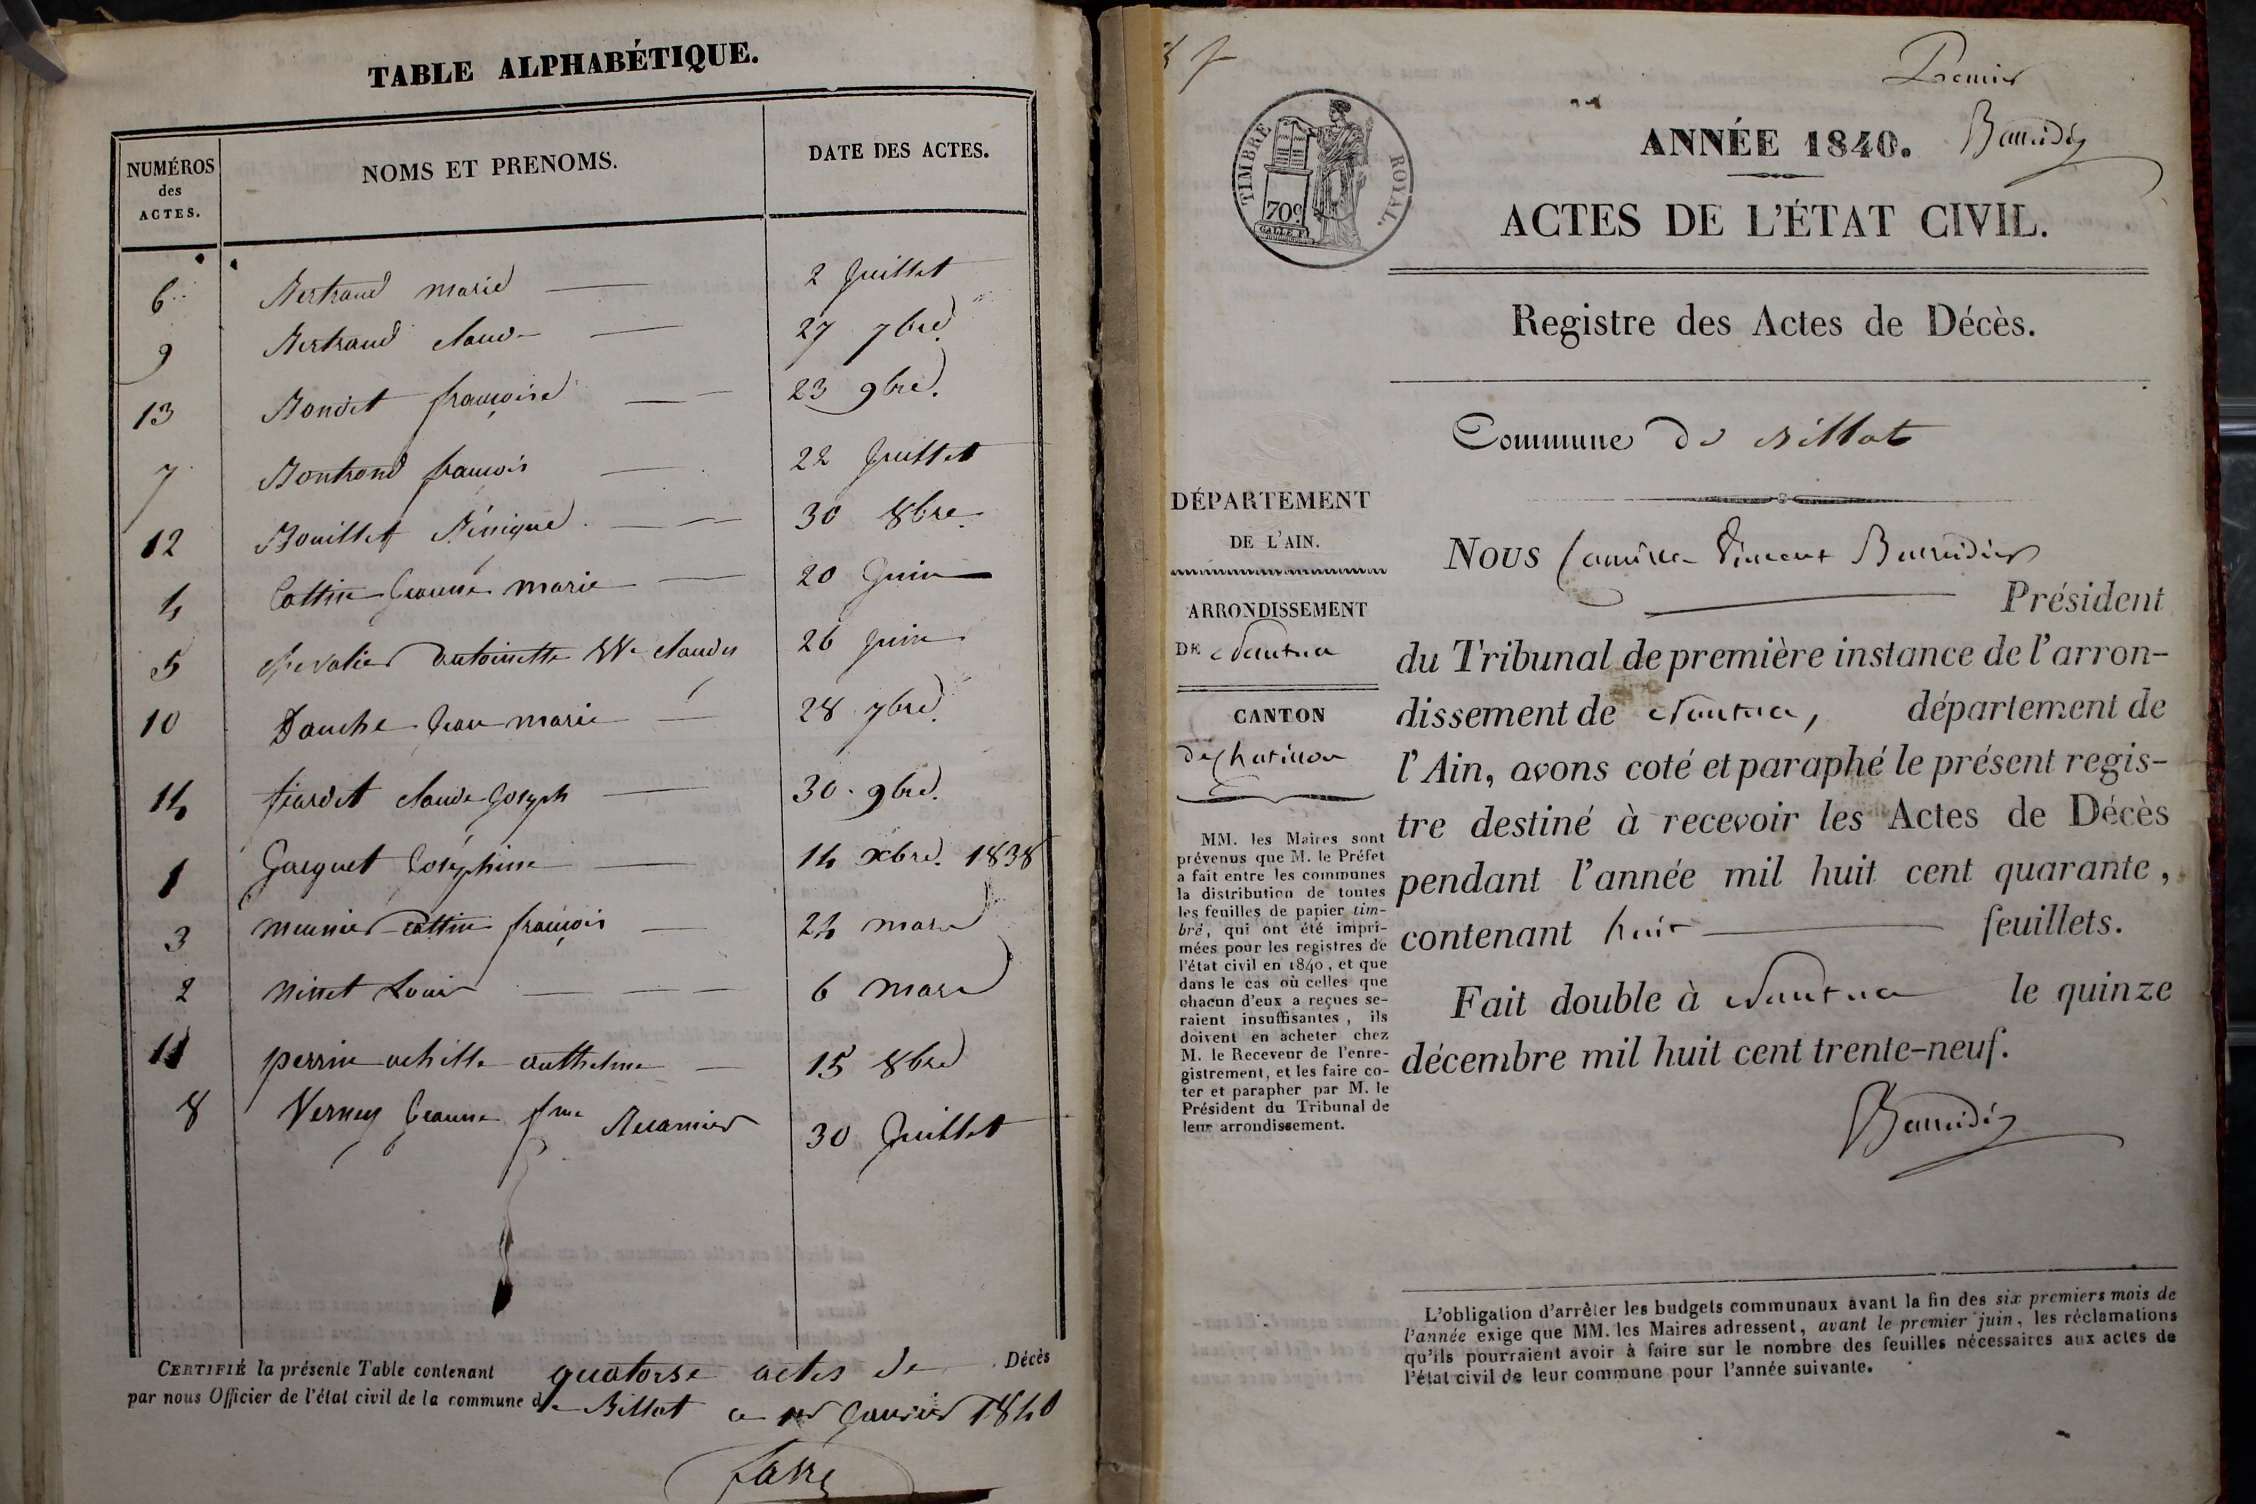 TABLE ALPHABÉTIQUE.
NUMÉROS des ACTES.
NOMS ET PRENOMS.
DATE DES ACTES.
6 Bertrand marie 2 Juillet
9 Bertrand claude 27 7bre
13 Bondet françoise 23 9bre.
7 Bontrond françois 22 Juillet
12 Bouillet Bénigne 30 8bre
4 Cottin Jeanne marie 20 Juin
5 Chevalier antoinette Ve claudes 26 Juin
10 Douche Jean marie 28 7bre
14 fiardet claude Joseph 30 9bre.
1 Gacguet Joséphine 14 xbre. 1838
3 meunier Cottin françois 24 mars
2 ninet Louis 6 mars
11 perrin achille anthelme 15 8bre
8 Verney Jeanne fme Recamier 30 Juillet
CERTIFIÉ la présente Table contenant quatorse actes de Décès
par nous Officier de l'état civil de la commune de Billiat ce 1er Janvier 1840
8 f
Premier
TIMBRE ROYAL.
70c
ANNÉE 1840.
ACTES DE L'ÉTAT CIVIL.
Registre des Actes de Décès.
Commune de Billat
DÉPARTEMENT
DE L'AIN.
ARRONDISSEMENT
DE Nantua
CANTON
de Chatillon
MM. les Maires sont
prévenus que M. le Préfet
a fait entre les communes
la distribution de toutes
les feuilles de papier tim-
bré, qui ont été impri-
mées pour les registres de
l'état civil en 1840, et que
dans le cas où celles que
chacun d'eux a reçues se-
raient insuffisantes, ils
doivent en acheter chez
M. le Receveur de l'enre-
gistrement, et les faire co-
ter et parapher par M. le
Président du Tribunal de
leur arrondissement.
Nous Camille Vincent Baudier
Président
du Tribunal de première instance de l'arron-
dissement de Nantua, département de
l'Ain, avons coté et paraphé le présent regis-
tre destiné à recevoir les Actes de Décès
pendant l'année mil huit cent quarante,
contenant huit feuillets.
Fait double à Nantua le quinze
décembre mil huit cent trente-neuf.
L'obligation d'arrêter les budgets communaux avant la fin des six premiers mois de
l'année exige que MM. les Maires adressent, avant le premier juin, les réclamations
qu'ils pourraient avoir à faire sur le nombre des feuilles nécessaires aux actes de
l'état civil de leur commune pour l'année suivante.